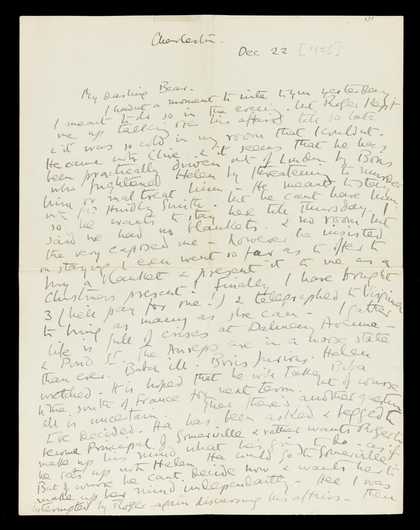 Charleston.
Dec 22 [1925]
My darling Bear.
I hadn't a moment to write to you yesterday.
I meant to do so in the evening. but Roger kept
me up talking on his affairs till so late
& it was so cold in my room that I couldn't.
He came with Clive & it seems that he has
been practically driven out of London by Boris
who frightened Helen by threatening to murder
him or maltreat him. He meant to stay
with his Hindley Smith. but he can't have him
so he wants to stay here till Thursday. I
said we had no blankets & no room but
the very exposed one - however he insisted
on staying & even went so far as to offer to
buy a blanket & present it to me as a
Christmas present! Finally I have bought
3 (he'll pay for one!) & telegraphed to Virginia
to bring as many as she can. I gather
life is full of crises at Dalmeny Avenue -
& Pino is The Anreps are in a worse state
than ever. Baba ill. Boris furious. Helen
wretched. It is hoped that he will take
to the South of France for next term of course
all is uncertain. Then there's another question
I've decided. Ha has been asked & begged to
become Principal of Somerville & rather wants Roger to
make up his mind what he's going to do - as if
he sets up with Helen. Ha would go to Somerville
But of course he can't decide now & wants her to
make up her mind independently - Here I was
interrupted by Roger again discussing his affairs - then